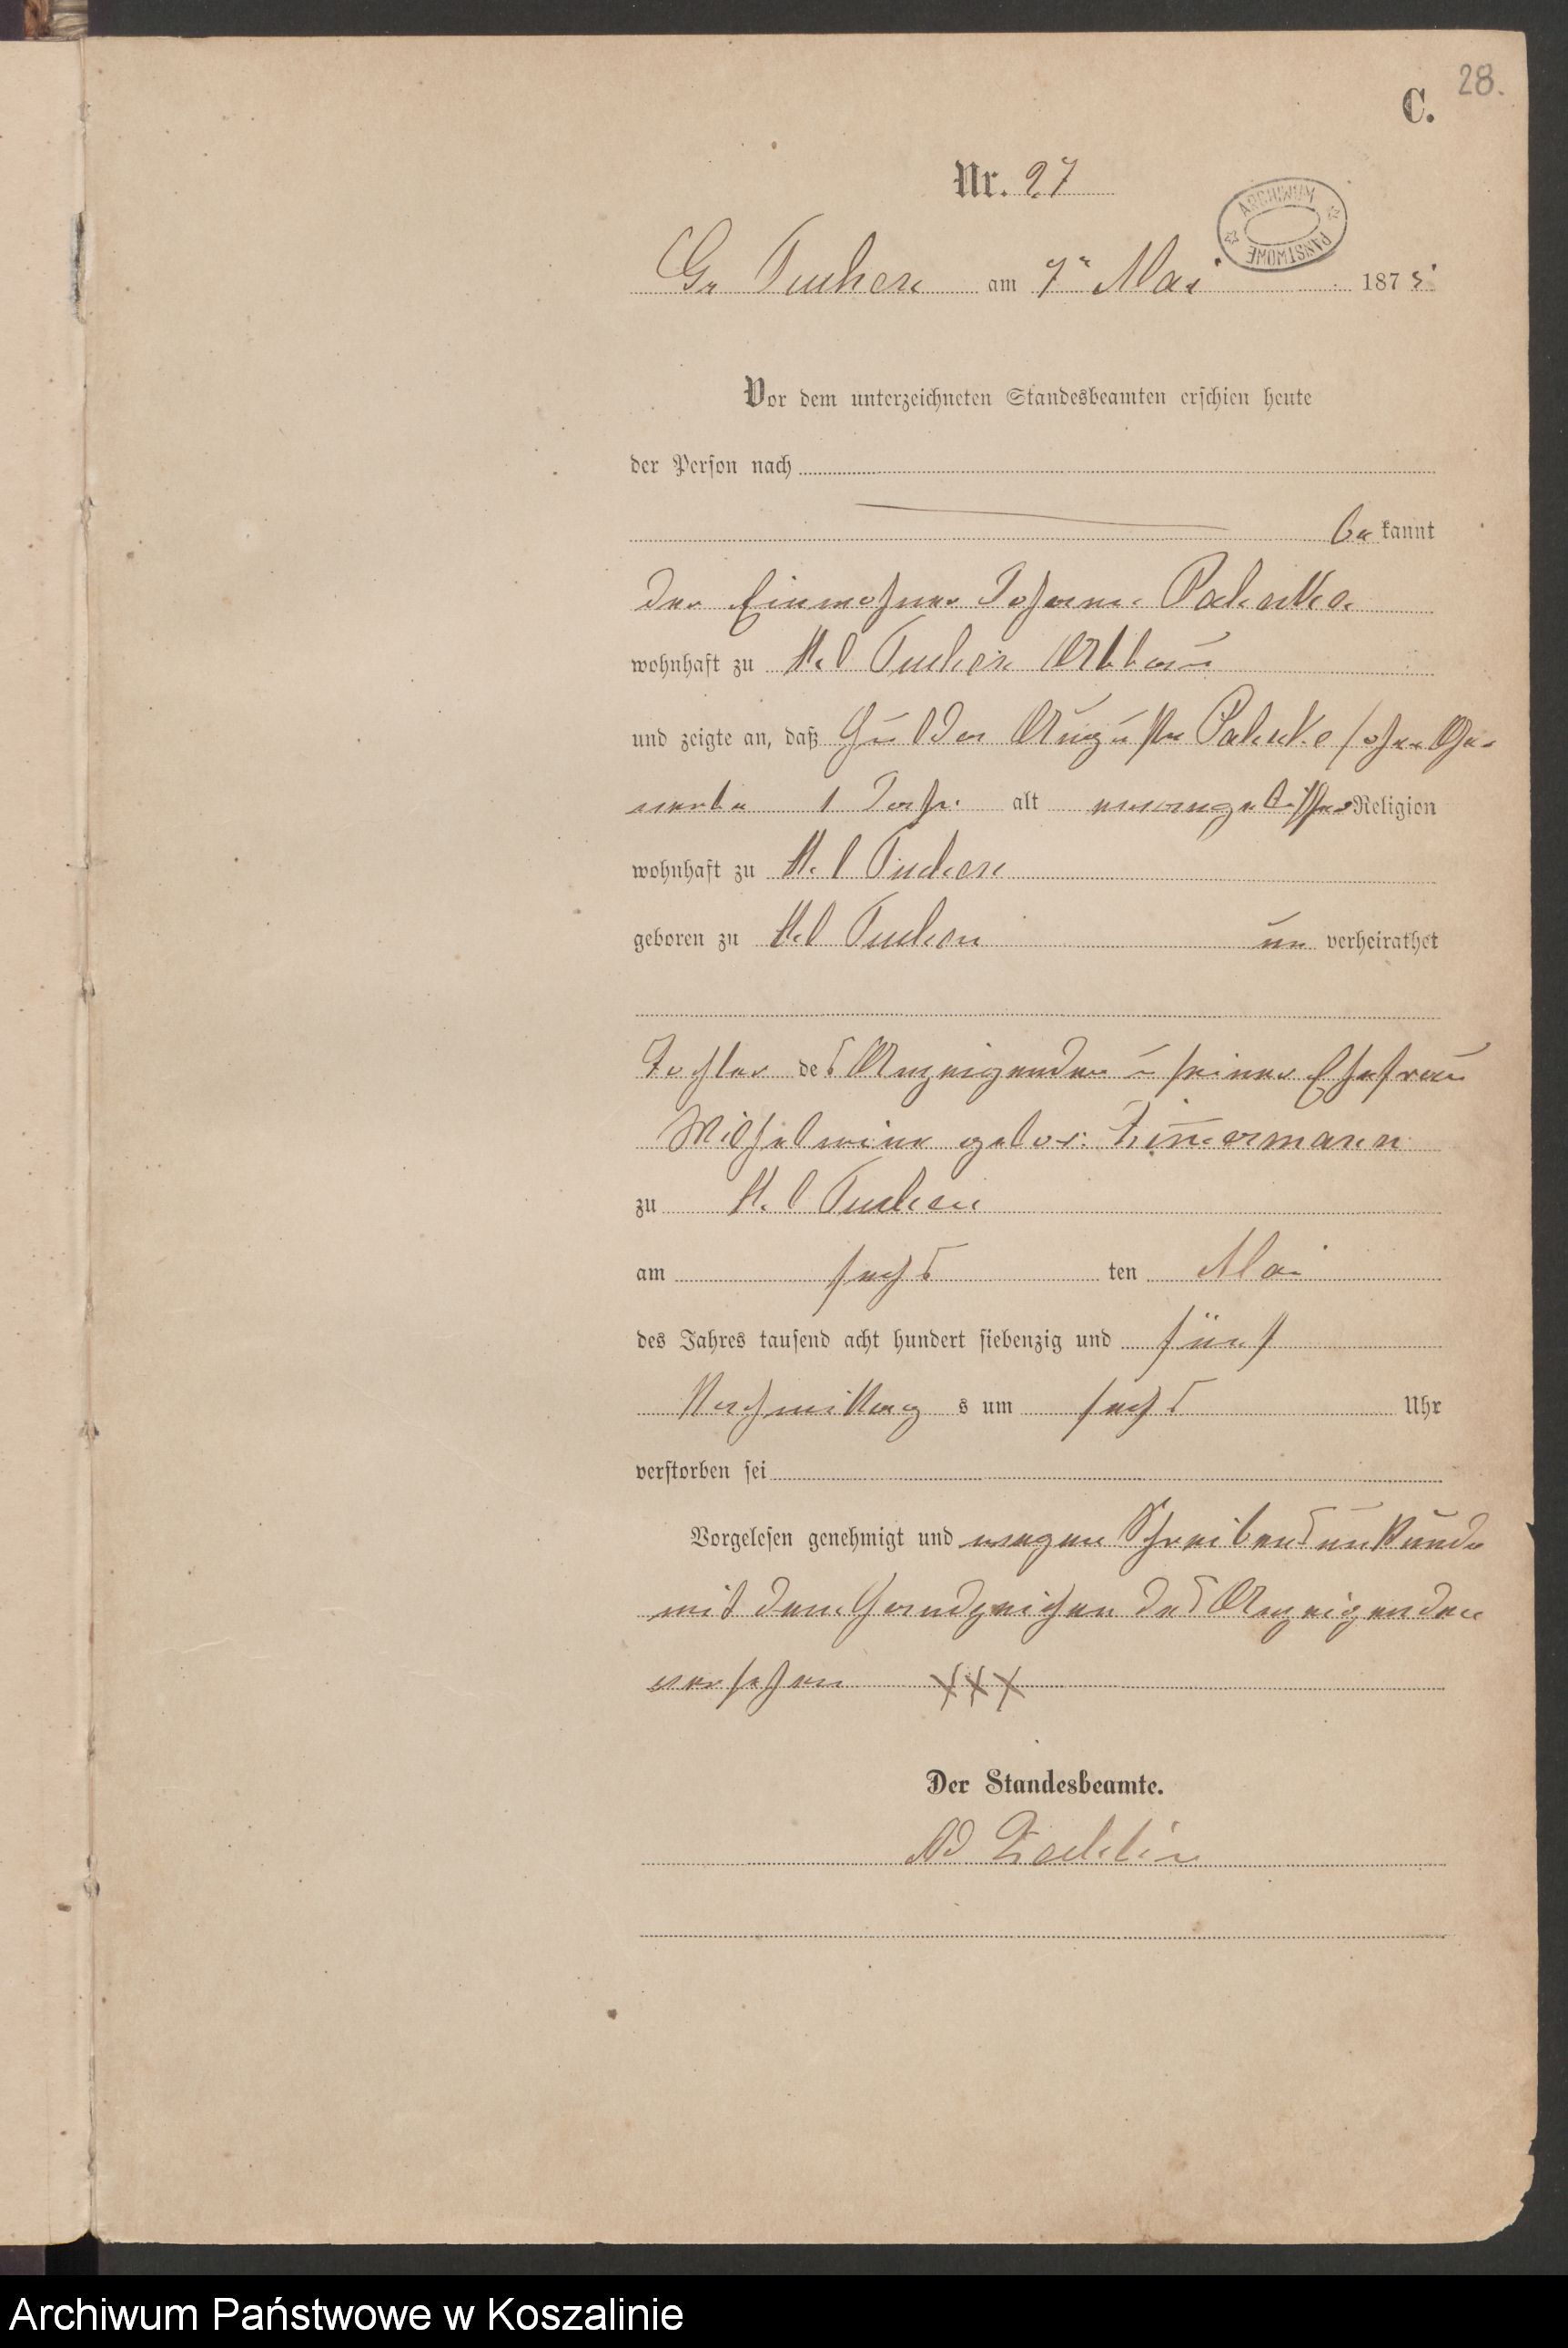 28.
C.
Nr. 27
ARCHIWUM PAŃSTWOWE
Gr Tuchen am 7ten Mai 1875
Vor dem unterzeichneten Standesbeamten erschien heute
der Person nach
bekannt
der Einwohner Johann
wohnhaft zu Kl Tuchen Abbau
und zeigte an, daß Hulda Auguste ohne Ge-
werbe 1 Jahr alt evangelischer Religion
wohnhaft zu Kl Tuchen
geboren zu Kl Tuchen unverheirathet
Tochter des Anzeigenden u seiner Ehefrau
Wilhelmine gebor: Zim̄ermann
zu Kl Tuchen
am sechs ten Mai
des Jahres tausend acht hundert siebenzig und fünf
Nachmittag s um sechs Uhr
verstorben sei
Vorgelesen genehmigt und wegen Schreibensunkunde
mit dem Handzeichen des Anzeigenden
versehen XXX
Der Standesbeamte.
Archiwum Państwowe w Koszalinie